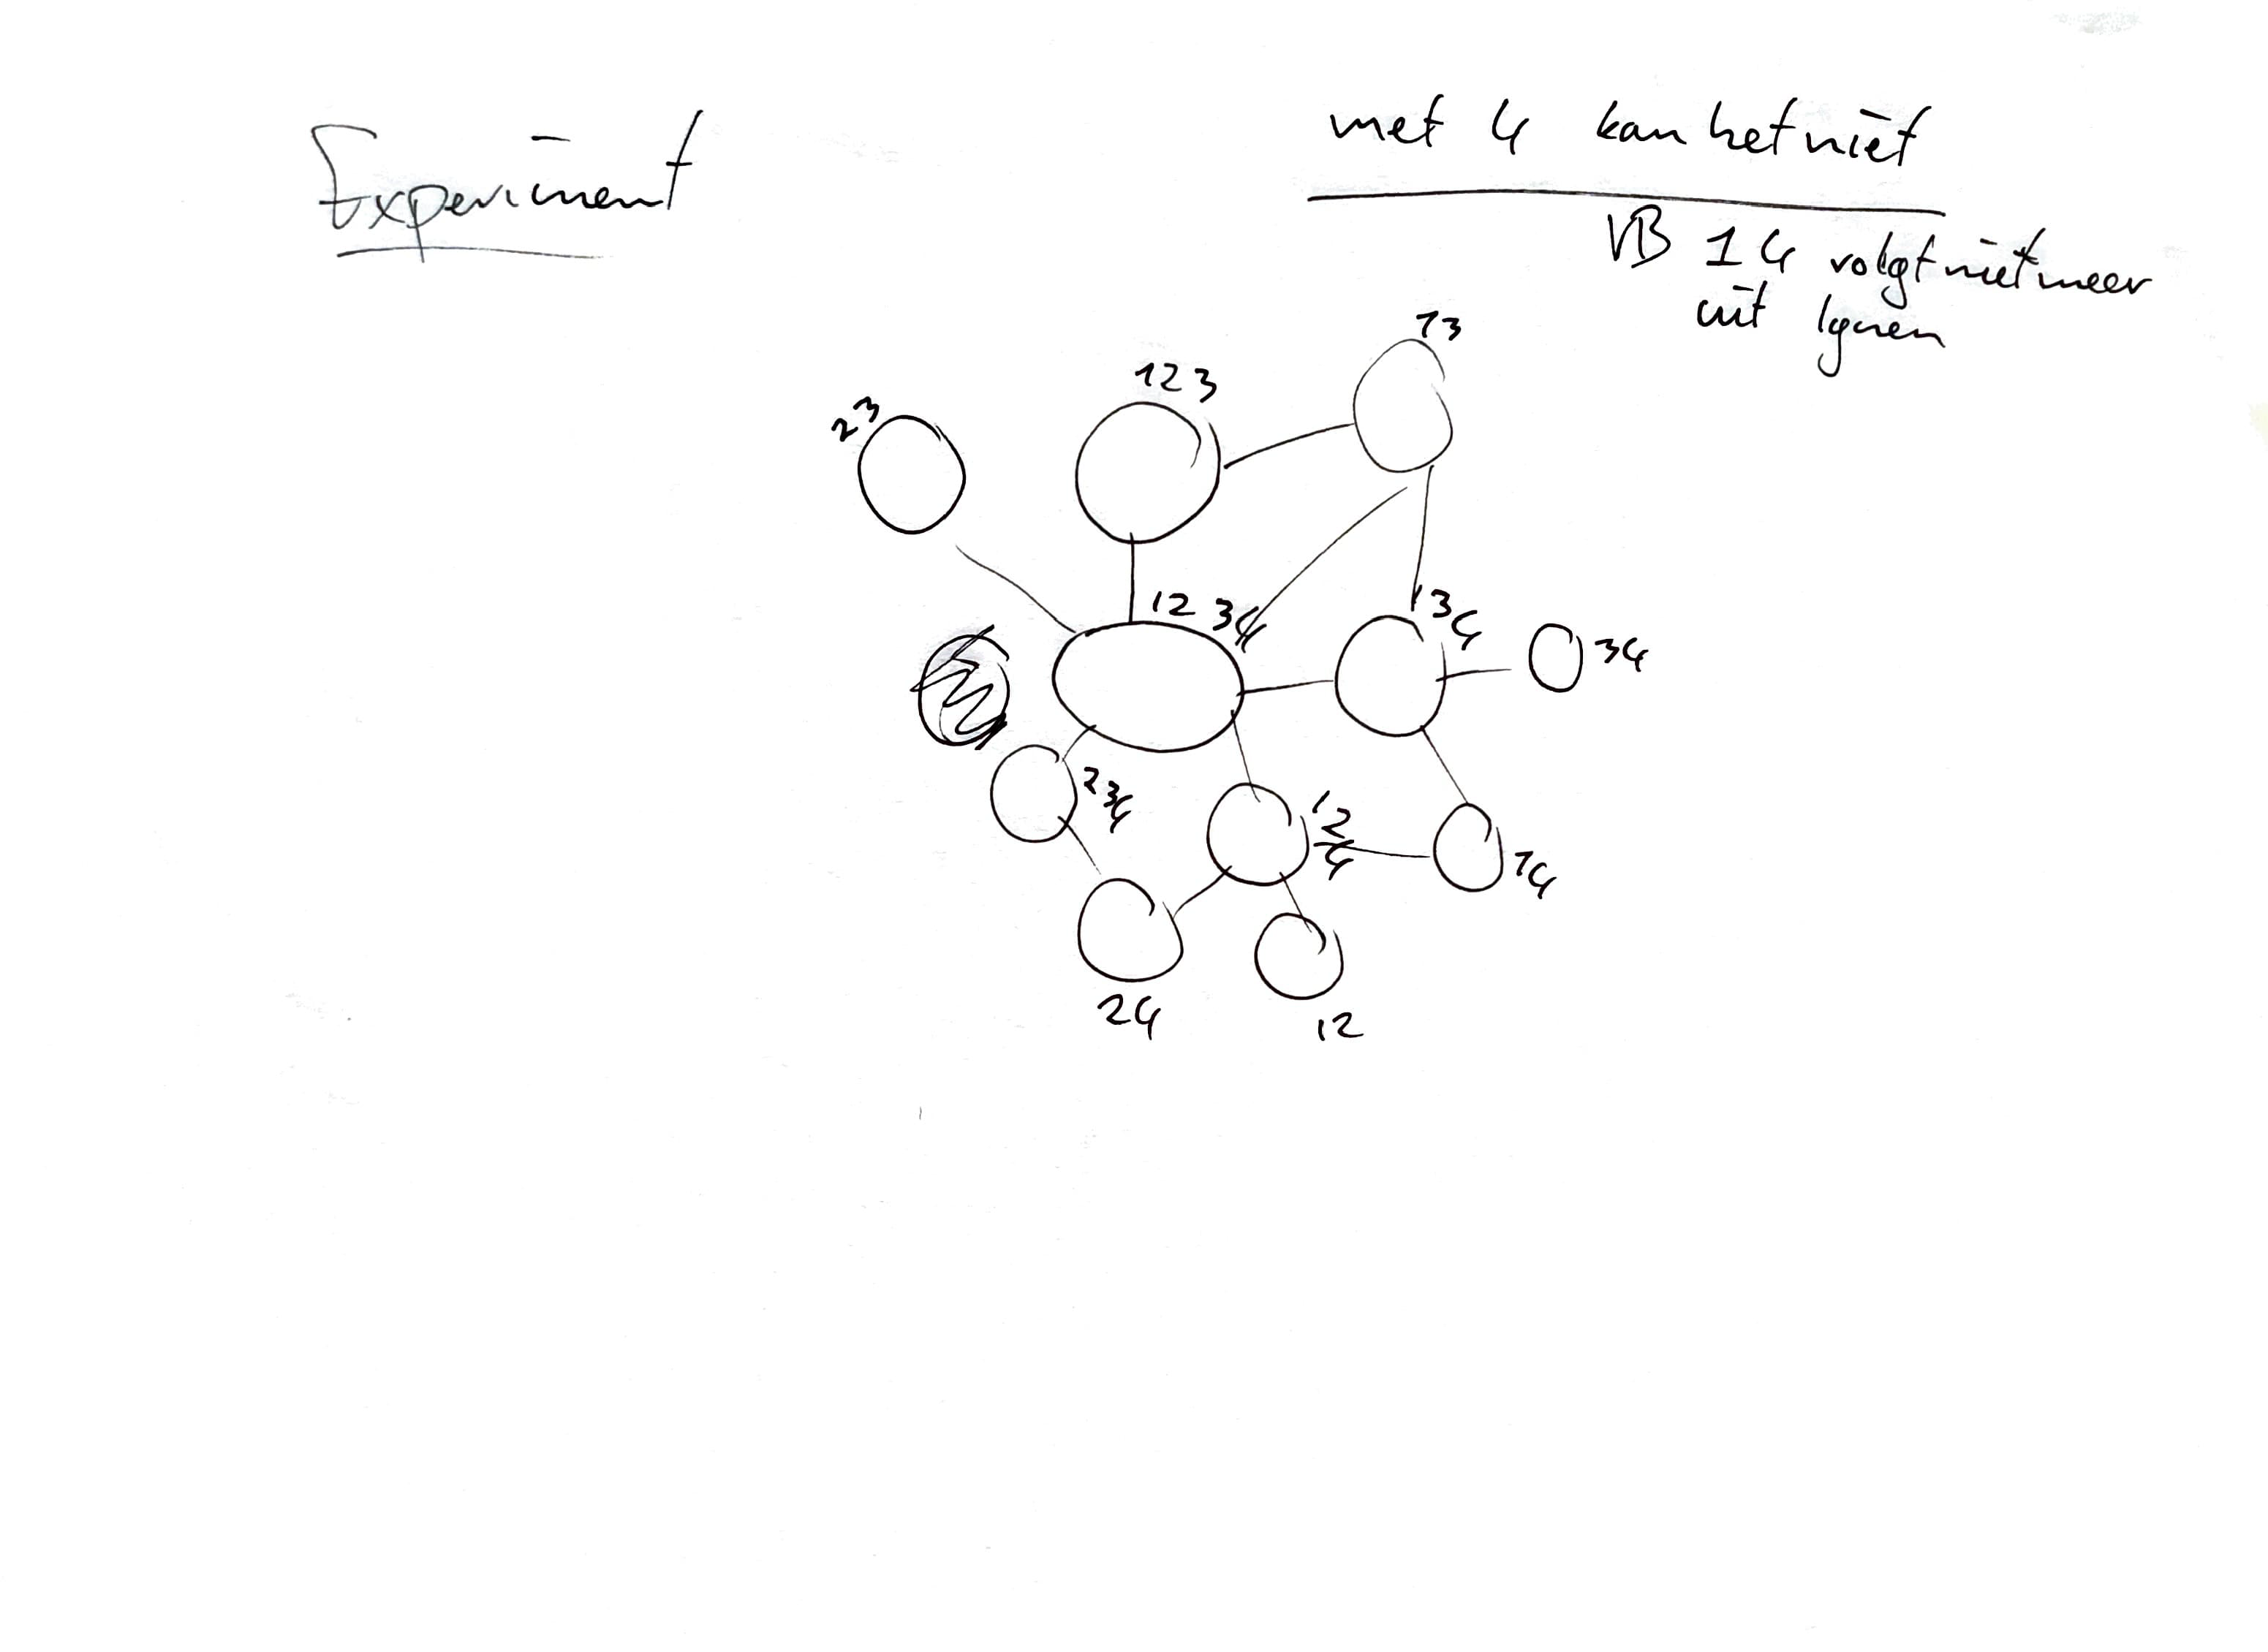 Experiment
met 4 kan het niet
VB 14 volgt niet meer
uit lijnen
13
123
23
1234
134
34
234
124
14
24
12